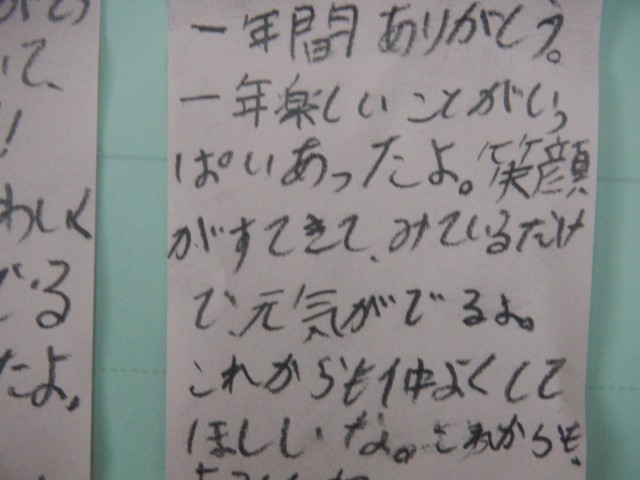 て、
!
わしく
でる
たよ。
一年間ありがとう。
一年楽しいことがいっ
ぱいあったよ。笑顔
がすてきで、みているだけ
で、元気がでるよ。
これからも仲よくして
ほしいな。これからも